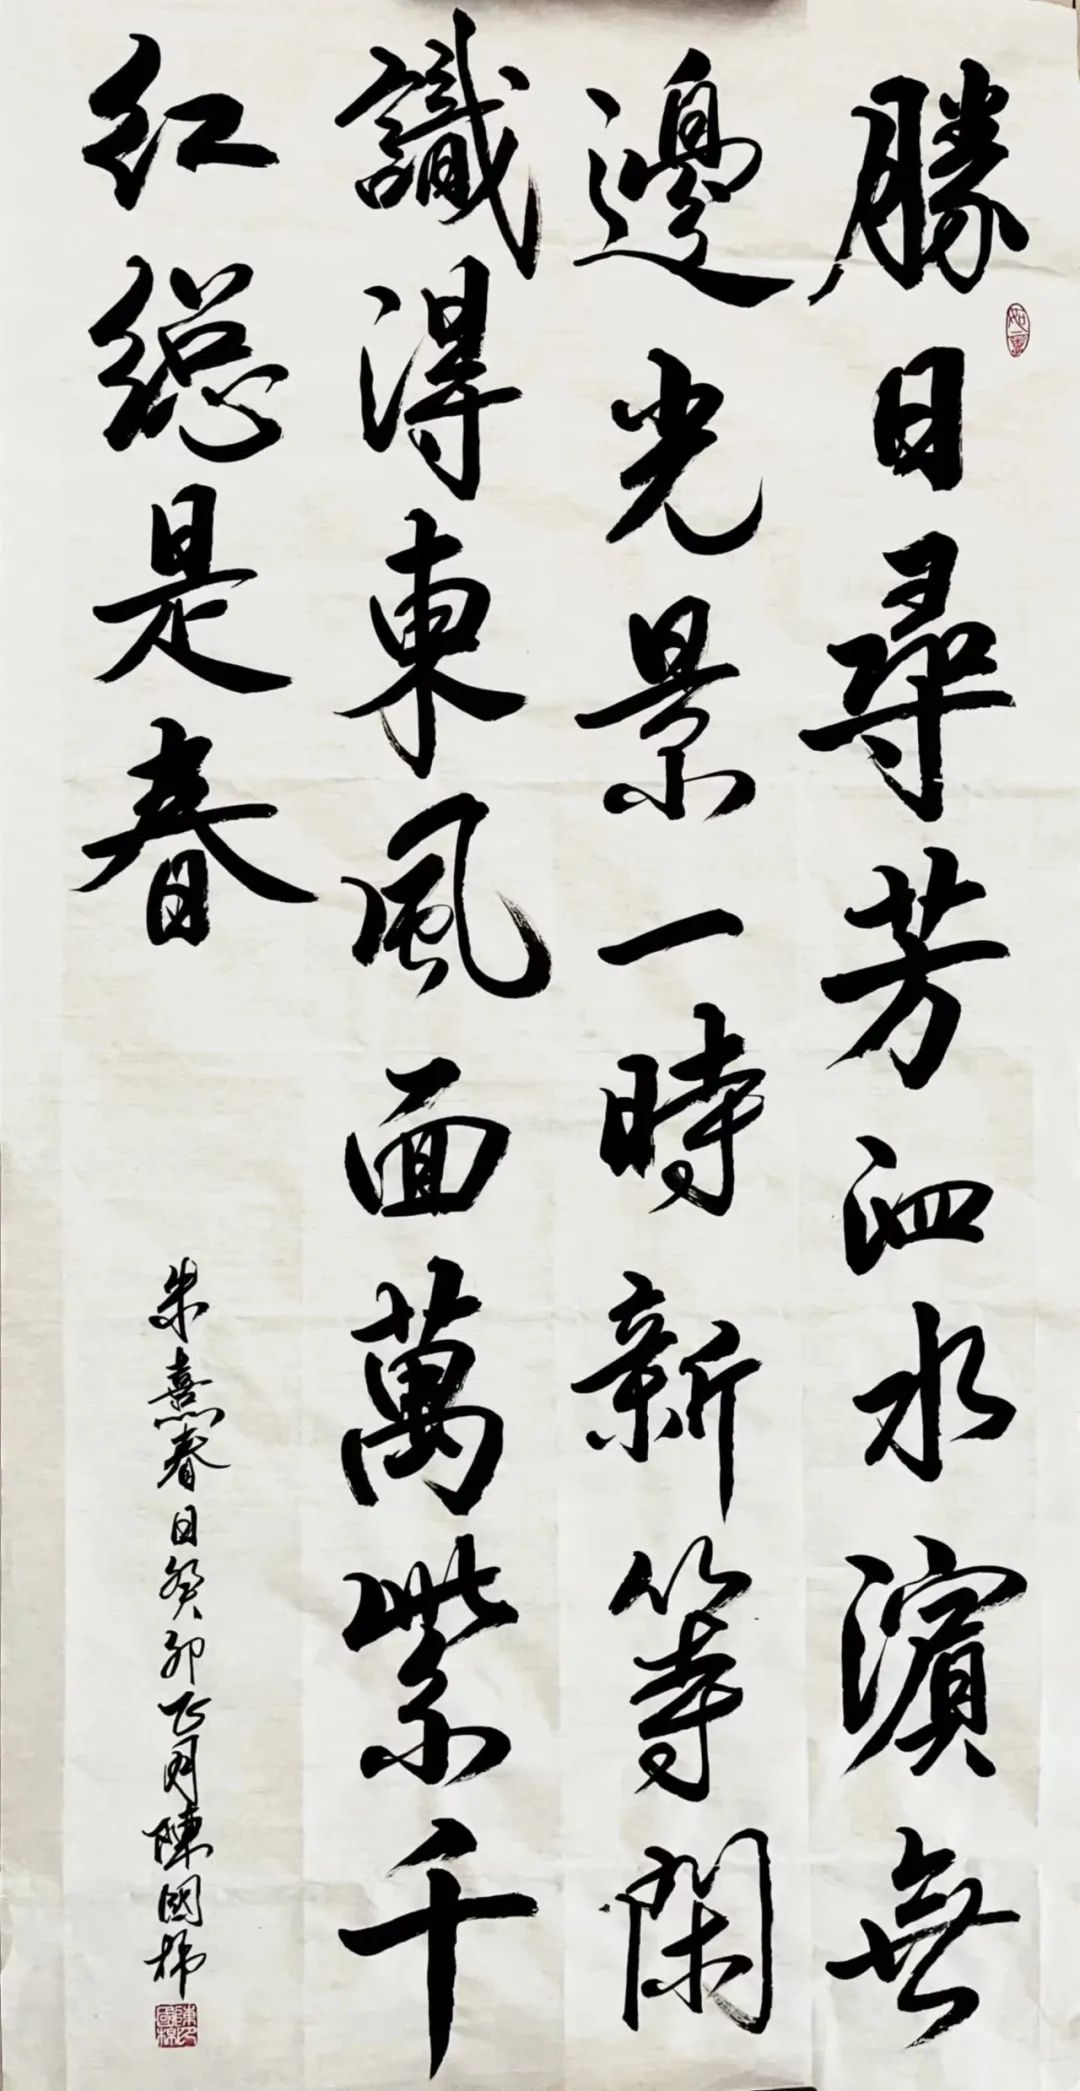 勝日尋芳泗水濱無
邊光景一時新等閑
識得東風面萬紫千
红總是春
朱熹春日癸卯正月陳國